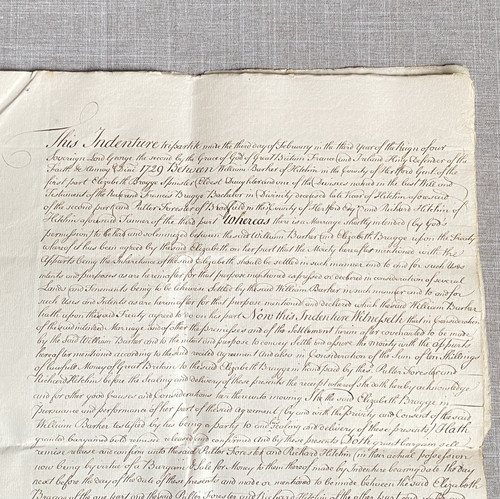 This Indenture tripartite made the third day of February in the third Year of the Reign of our
Sovereign Lord George the second by the Grace of God of Great Britain France and Ireland King Defender of the
Faith &c Annoq Dni 1729 Between William Barker of Hitchin in the County of Hertford Gent of the
first part Elizabeth Bragge Spinster Eldest Daughter and one of the Devisees named in the last Will and
Testament of the Reverend Francis Bragge Bachelor in Divinity deceased late Vicar of Hitchin aforesaid
of the second part and Pulter Forester of Broadfield in the County of Hertford Esqr and Richard Hitchin of
Hitchin aforesaid Tanner of the third part Whereas there is a Marriage shortly intended (by Gods
permission) to be had and solemnized between the said William Barker and Elizabeth Bragge upon the Treaty
whereof it has been agreed by the said Elizabeth on her part that the Moiety hereafter mentioned with the
Appurts being the Inheritance of the said Elizabeth should be settled in such manner and to and for such Uses
intents and purposes as are hereinafter for that purpose mentioned expressed or declared in consideration of several
Lands and Tenements being to be likewise settled by the said William Barker in such manner and to and for
such Uses and Intents as are hereinafter for that purpose mentioned and declared which the said William Barker
hath upon the said Treaty agreed to do on his part Now this Indenture Witnesseth that in Consideration
of the said intended Marriage and of other the premisses and of the Settlement herein after covenanted to be made
by the said William Barker and to the intent and purpose to convey settle and assure the Moiety with the appurts
hereafter mentioned according to the said recited Agreement And also in Consideration of the Sum of ten Shillings
of lawfull Money of Great Britain to the said Elizabeth Bragge in hand paid by the sd Pulter Forester and
Richard Hitchin before the Sealing and delivery of these presents the receipt whereof she doth hereby acknowledge
and for other good Causes and Considerations her thereunto moving She the said Elizabeth Bragge in
pursuance and performance of her part of the said agreement (by and with the privity and Consent of the said
William Barker testified by his being a party to and Sealing and delivery of these presents) Hath
granted bargained sold remised released and confirmed And by these presents Doth grant bargain sell
remise release and confirm unto the said Pulter Forester and Richard Hitchin (in their actual possession
now being by virtue of a Bargain & Sale for Money to them thereof made by Indenture bearing date the Day
next before the Day of the Date of these presents and made or mentioned to be made between the said Elizabeth
Bragge of the one part and the said Pulter Forester and Richard Hitchin of the other part